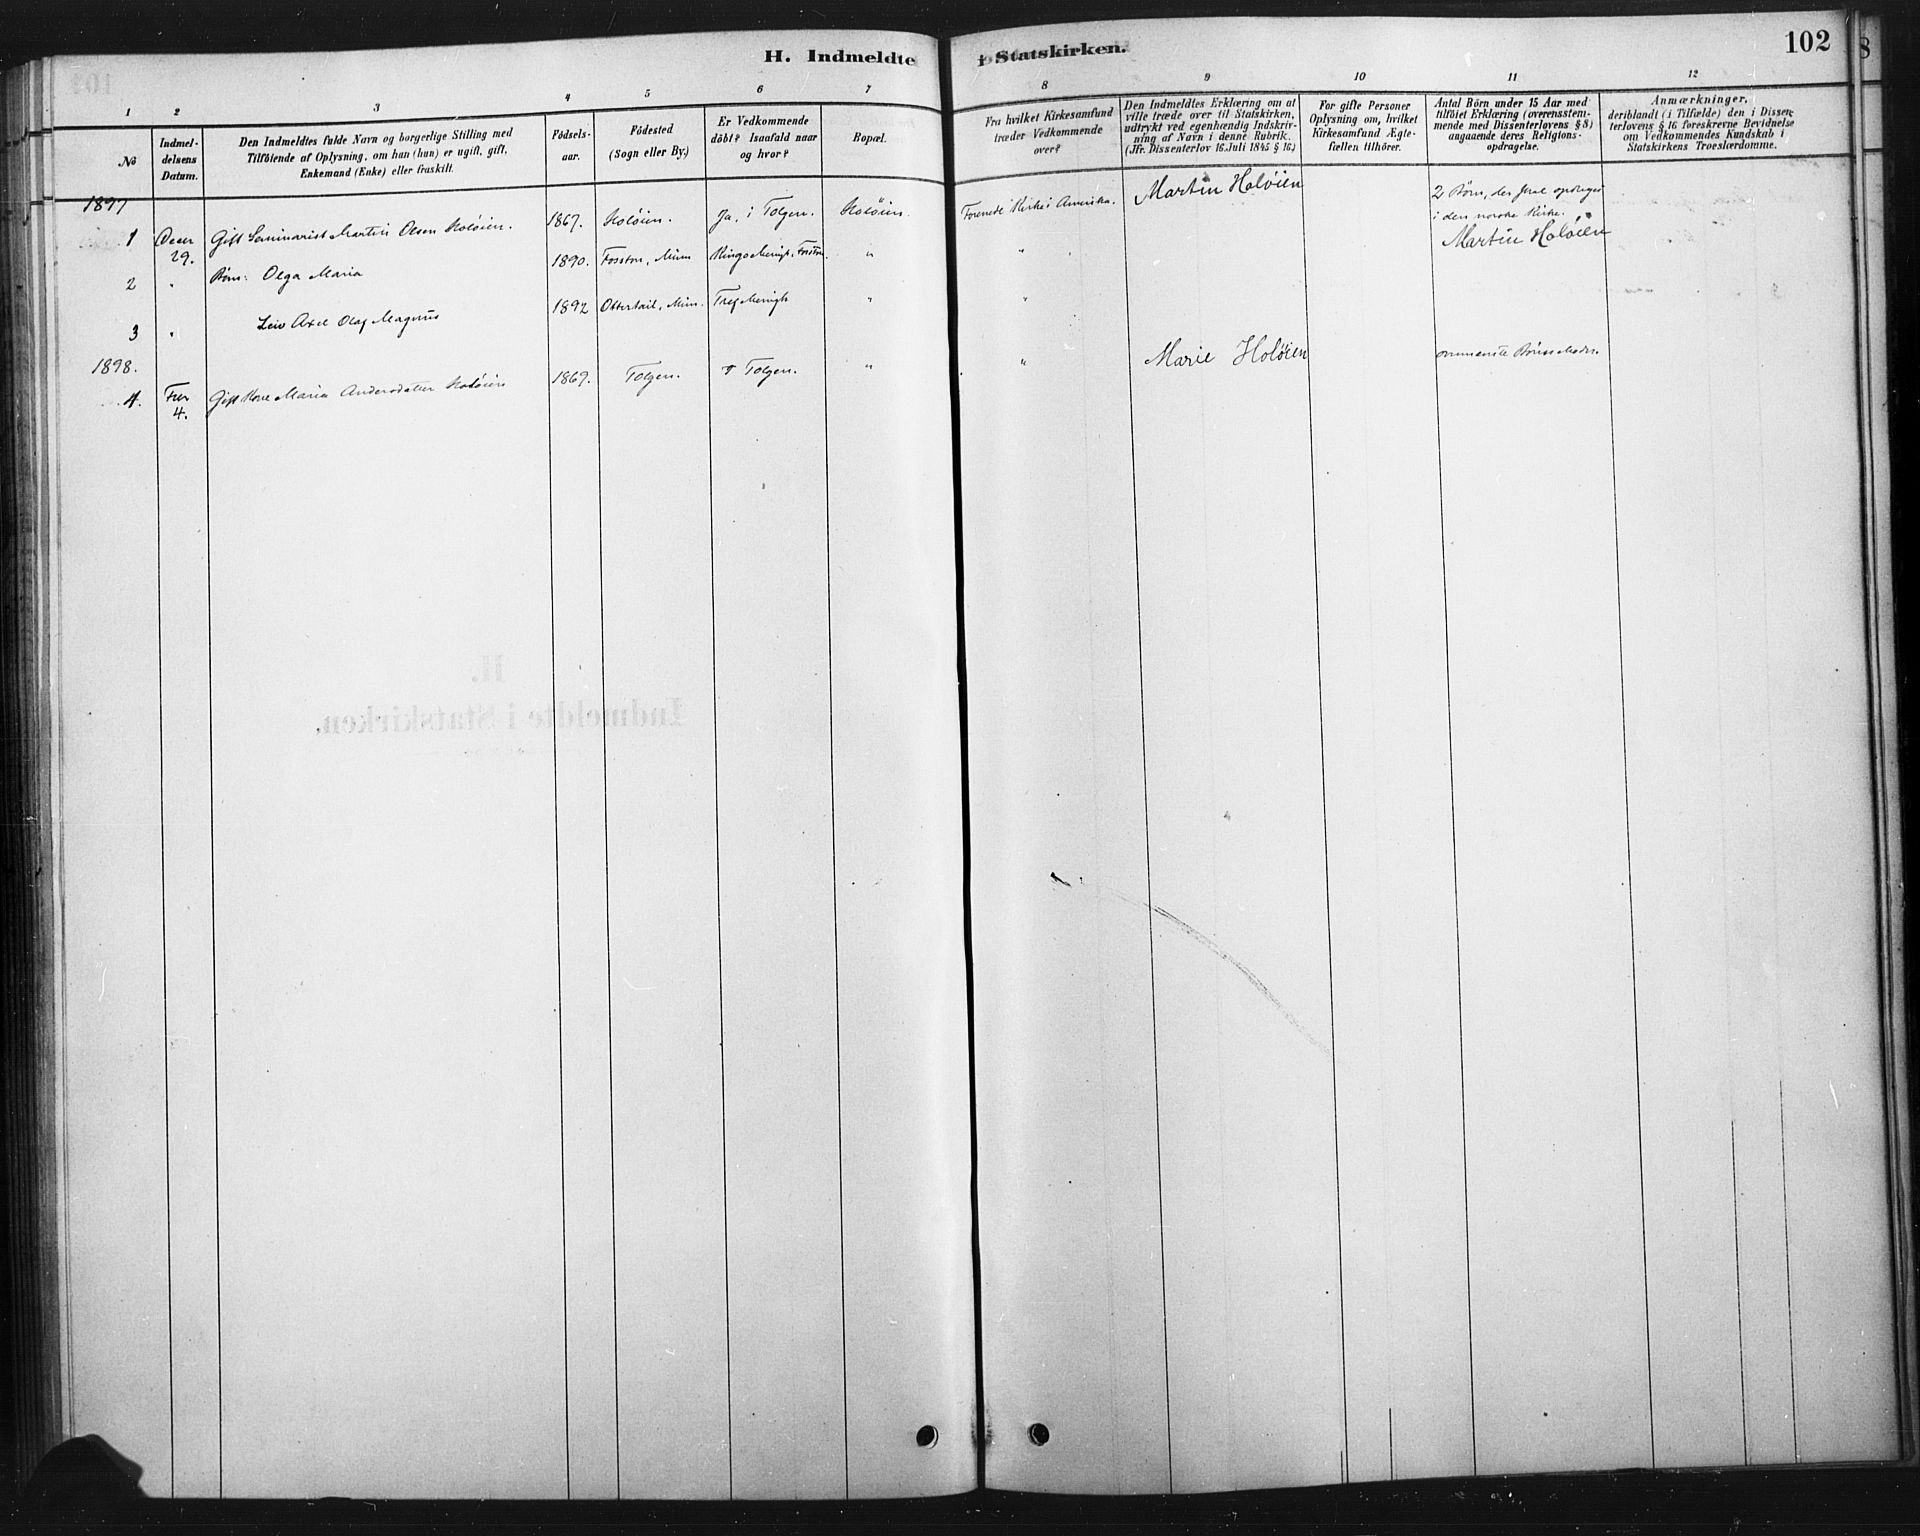 H. Indmeldte i Statskirken. 102
1 2 3 4 5 6 7 8 9 10 11 12
No
Indmel-
delsens
Datum.
Den Indmeldtes fulde Navn og borgerlige Stilling med
Tilföiende af Oplysning, om han (hun) er ugift, gift,
Enkemand (Enke) eller fraskilt.
Födsels-
aar.
Födested
(Sogn eller By.)
Er Vedkommende
döbt? Isaafald naar
og hvor?
Bopæl.
Fra hvilket Kirkesamfund
træder Vedkommende
over?
Den Indmeldtes Erklæring om at
ville træde over til Statskirken,
udtrykt ved egenhændig Indskriv-
ning af Navn i denne Rubrik.
(Jfr. Dissenterlov 16. Juli 1845 § 16.)
For gifte Personer
Oplysning om, hvilket
Kirkesamfund Ægte-
fællen tilhörer.
Antal Börn under 15 Aar med
tilföiet Erklæring (overensstem-
mende med Dissenterlovens § 8)
angaaende deres Religions-
opdragelse.
Anmærkninger,
deriblandt (i Tilfælde) den i Dissen-
terlovens § 16 foreskrevne Bevidnelse
om Vedkommendes Kundskab i
Statskirkens Troeslærdomme.
1897
1 Decr 29. Gift Seminarist Martin Olsen Holöien. 1867. Holöien. Ja, i Tolgen. Holöien. Forenede Kirke i Amerika. Martin Holöien 2 Börn, der skal opdrages
i den norske Kirke.
Martin Holöien
2 " Börn: Olga Maria 1890. Fosston, Minn Fosston. " "
3 " Leiv Axel Olaf Magnus 1892 Ottertail, Min. " "
1898.
4. Febr 4. Gift Kone Maria Andersdatter Holöien 1869. Tolgen. Tolgen. " " Marie Holöien Börns Moder.
H.
Indmeldte i Statskirken.